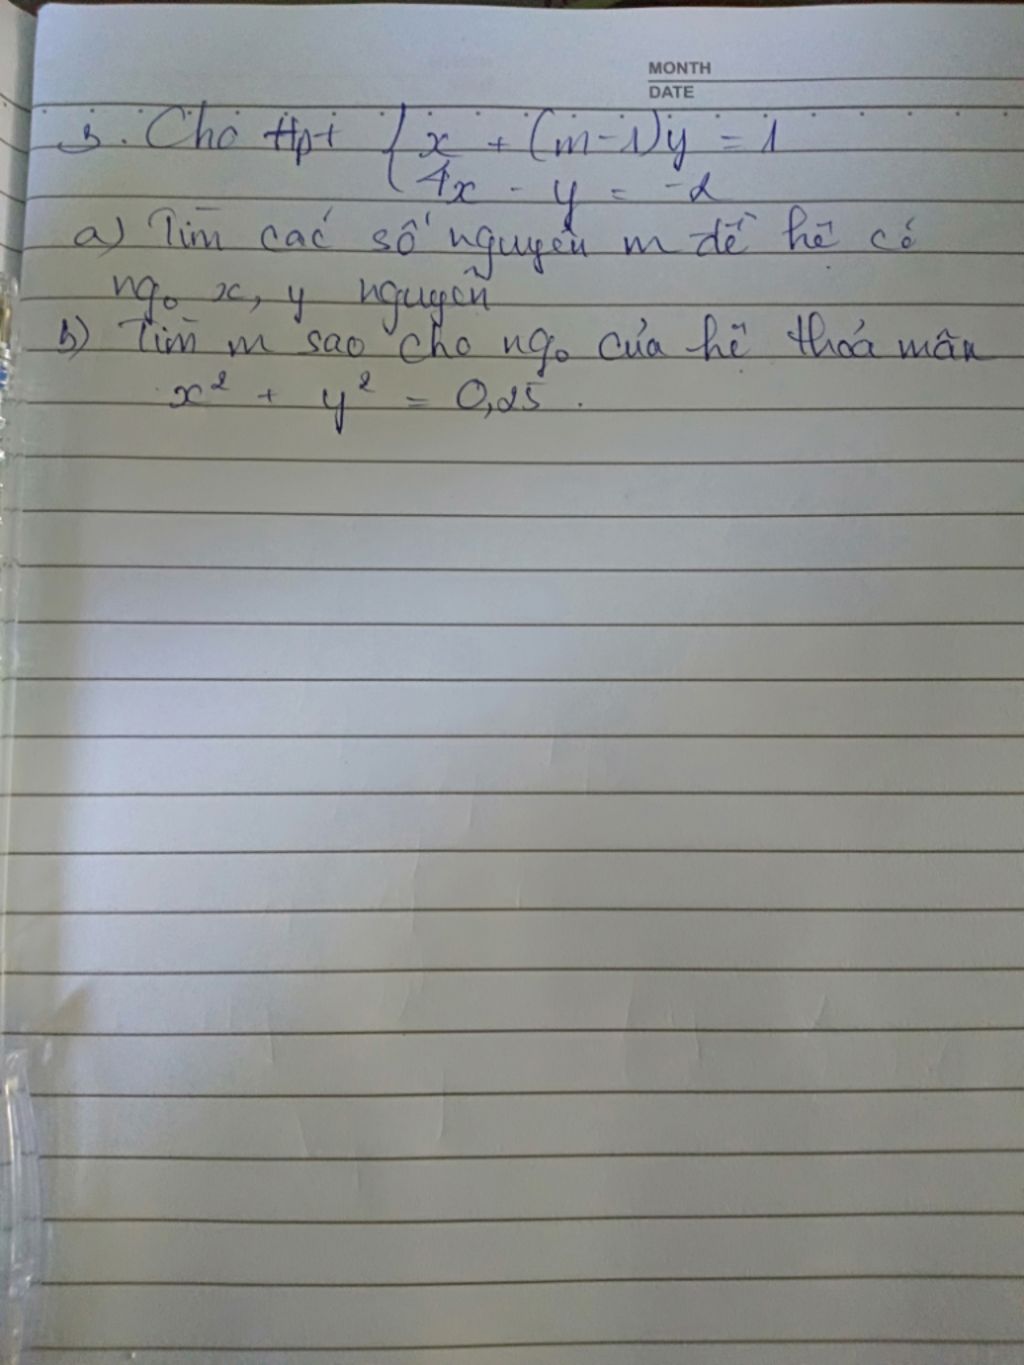 MONTH
DATE
3. Cho Hpt { x + (m-1)y = 1
4x - y = -2
a) Tìm các số nguyên m để hệ có
ngo x, y nguyên
b) Tìm m sao cho ngo của hệ thoả mãn
x² + y² = 0,25.